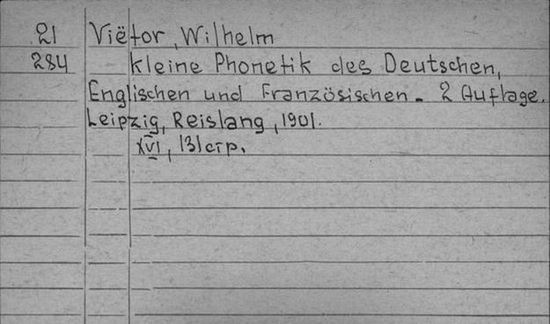 21 Viëtor, Wilhelm
284 Kleine Phonetik des Deutschen,
Englischen und Französischen. 2 Auflage.
Leipzig, Reislang, 1901.
XVI, 131 стр.